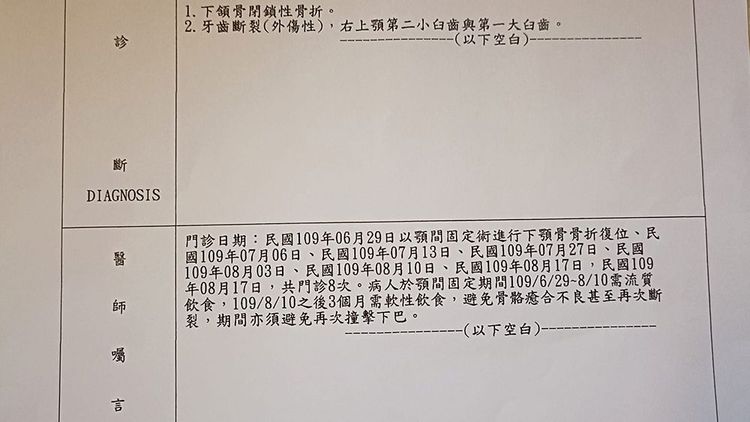 診
斷
DIAGNOSIS
1.下頷骨閉鎖性骨折。
2.牙齒斷裂(外傷性)，右上顎第二小臼齒與第一大臼齒。
----------------(以下空白)----------------
醫
師
囑
言
門診日期：民國109年06月29日以顎間固定術進行下顎骨骨折復位、民
國109年07月06日、民國109年07月13日、民國109年07月27日、民國
109年08月03日、民國109年08月10日、民國109年08月17日，民國109
年08月17日，共門診8次。病人於顎間固定期間109/6/29~8/10需流質
飲食，109/8/10之後3個月需軟性飲食，避免骨骼癒合不良甚至再次斷
裂，期間亦須避免再次撞擊下巴。
----------------(以下空白)----------------